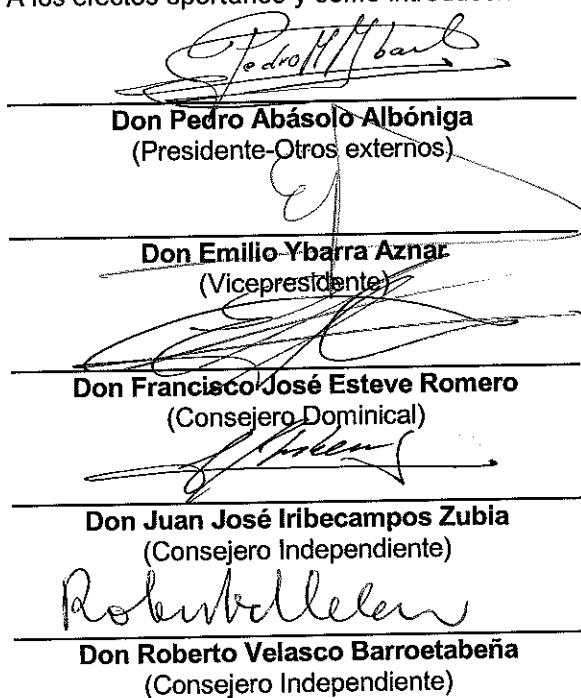 A los efectos oportunos y como
Pedro M Ybarra
Don Pedro Abásolo Albóniga
(Presidente-Otros externos)
Don Emilio Ybarra Aznar
(Vicepresidente)
Don Francisco José Esteve Romero
(Consejero Dominical)
Don Juan José Iribecampos Zubia
(Consejero Independiente)
Don Roberto Velasco Barroetabeña
(Consejero Independiente)